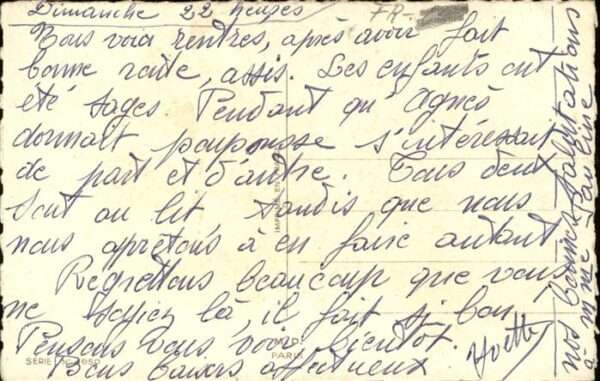 Dimanche 22 heures
FR-
Vous voici rentrés, après avoir fait
bonne route, assis. Les enfants ont
été sages. Pendant qu'Agnès
dormait poupousse s'intéressait
de part et d'autre. Tous deux
sont au lit tandis que nous
nous aprêtons à en faire autant
Regrettons beaucoup que vous
ne soyiez là, il fait si bon
Pensons vous voir bientôt.
Bons baisers affectueux
Yvette
nos bonnes salutations
à mme
IMPRIMÉ EN
PARIS
SERIE